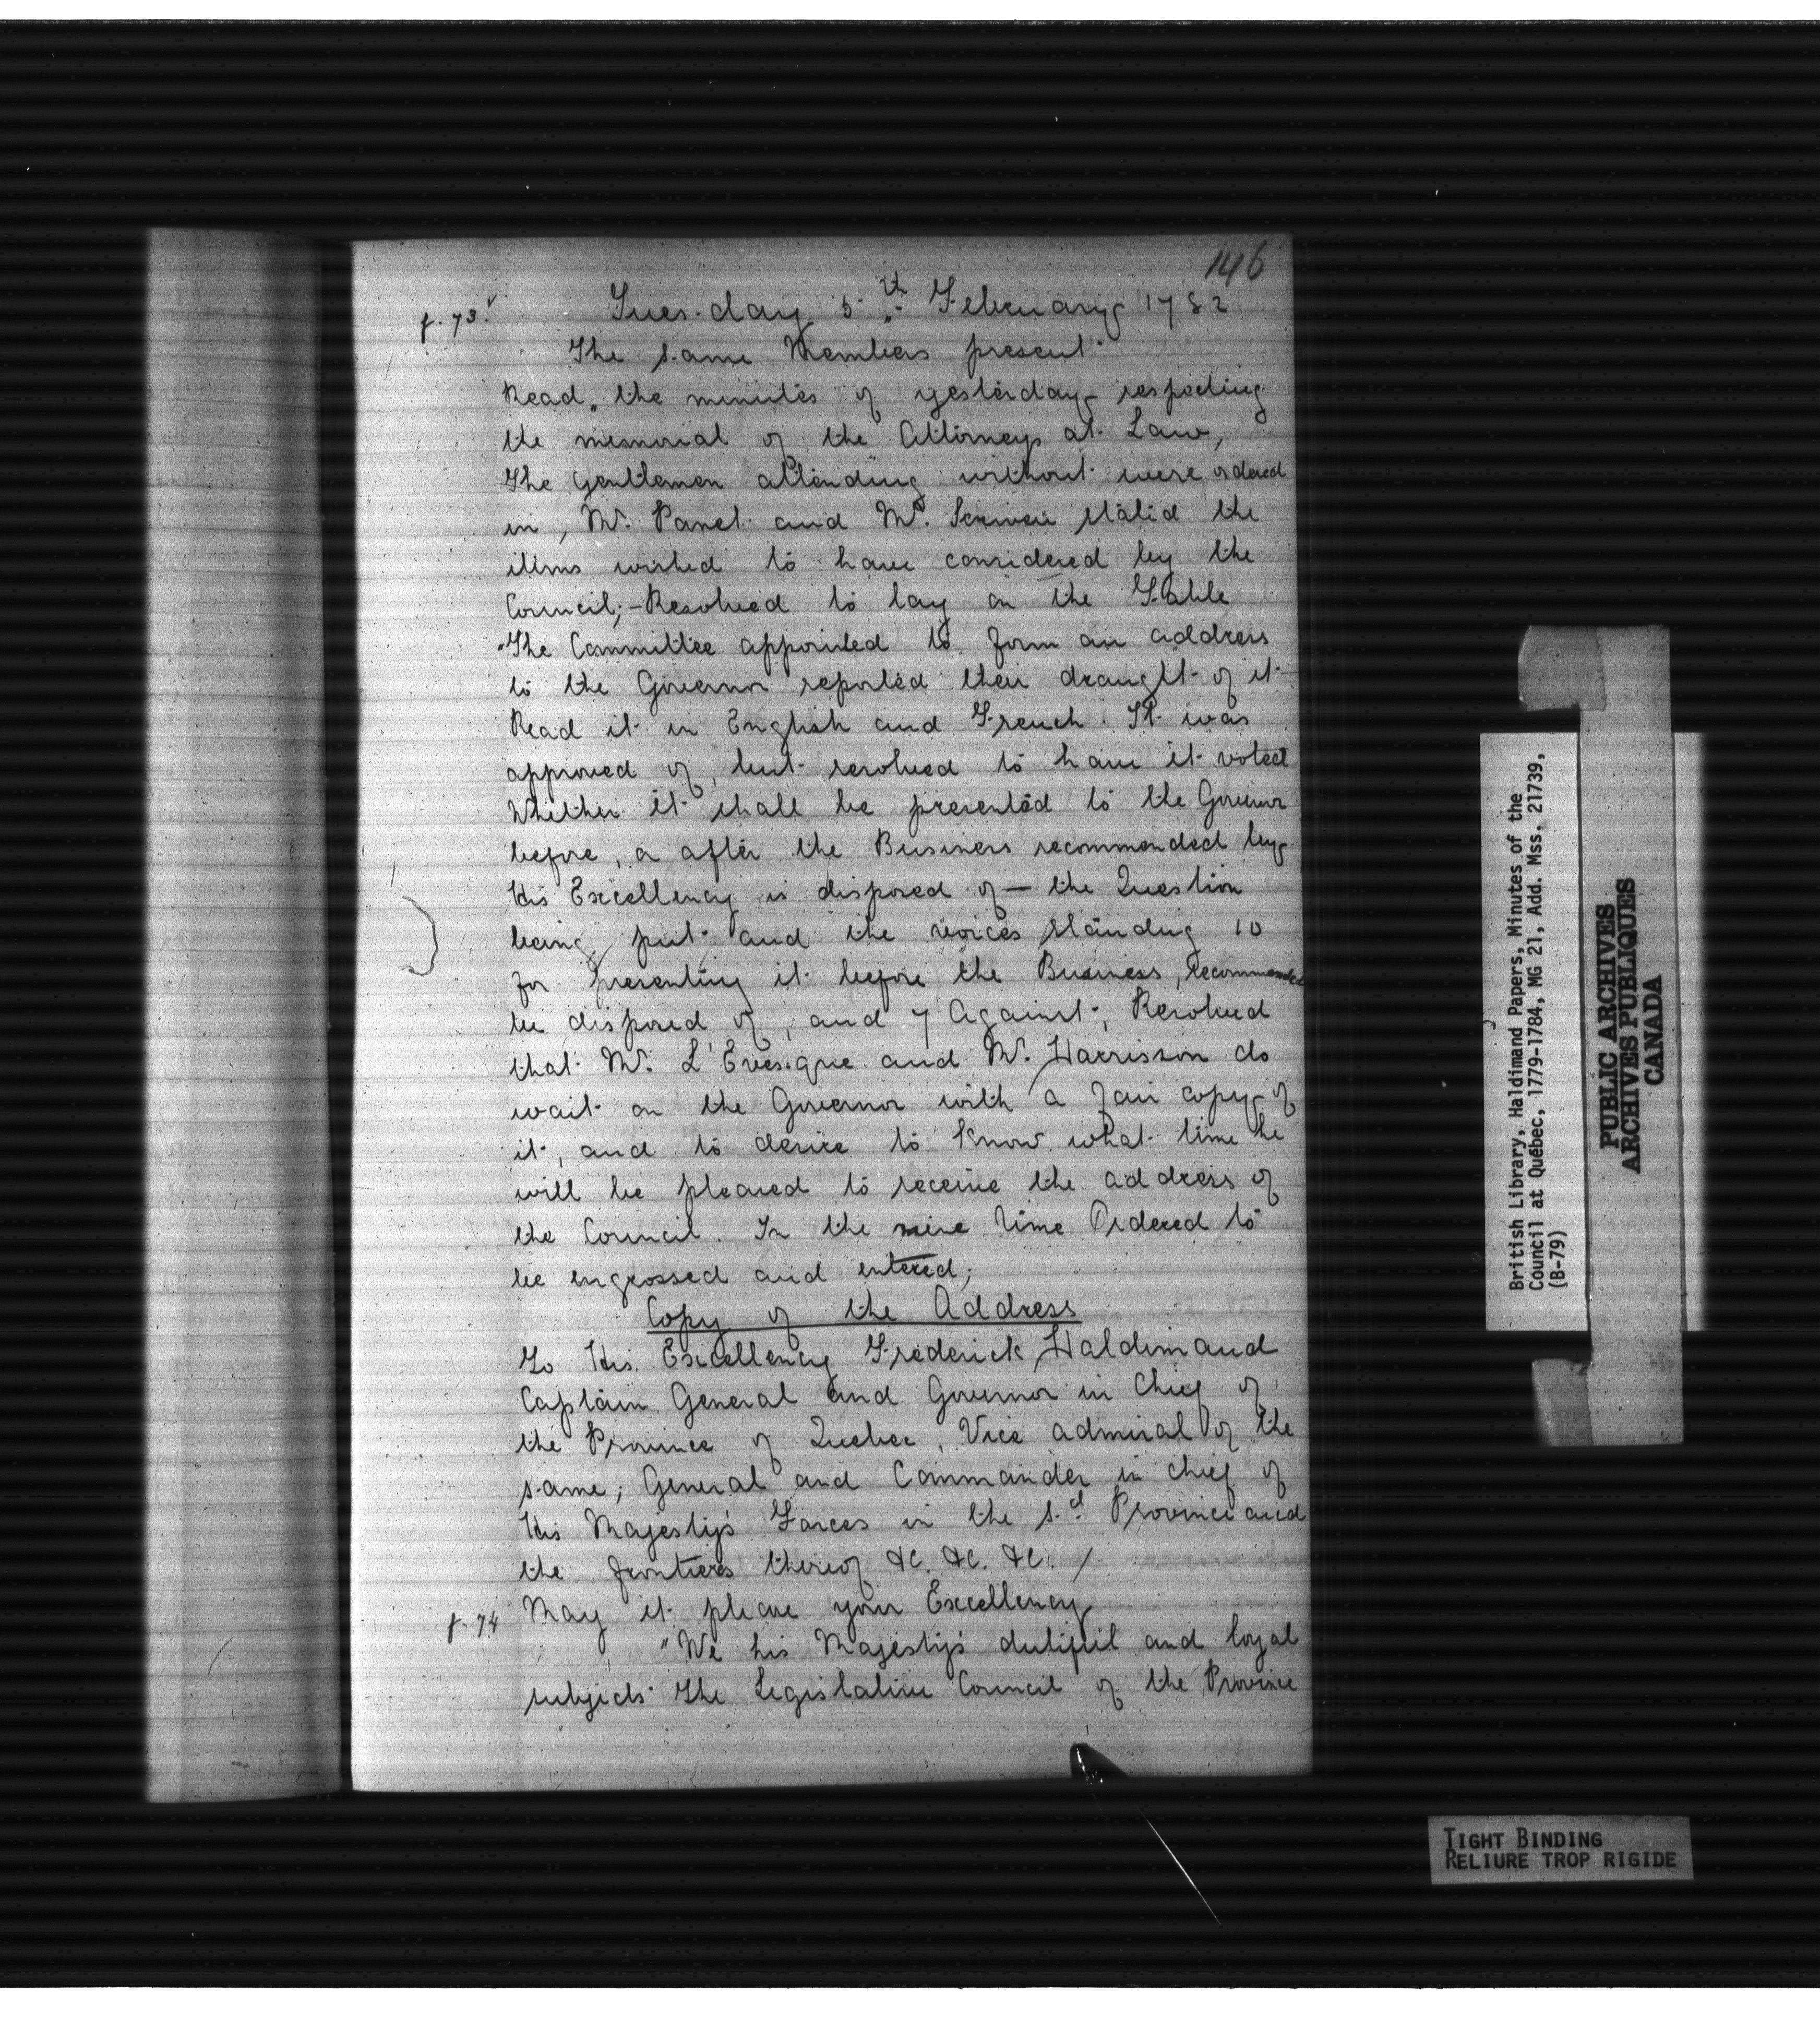 146
f. 73.v
Tuesday 5th February 1782
The same Members present
Read, the minutes of yesterday respecting
the memorial of the Attorneys at Law,
The Gentlemen attending without were ordered
in, Mr. Panet and Mr. stated the
items wished to have considered by the
Council; - Resolved to lay on the Table
"The Committee appointed to form an address
to the Governor reported their draught of it
Read it in English and French. It was
approved of, but resolved to have it voted
Whether it shall be presented to the Governor
before, or after the Business recommended by
His Excellency is disposed of — the Question
being put and the voices standing 10
for presenting it before the Business, recommended
be disposed of, and 7 Against, Resolved
that Mr. L'Evesque and Mr. Harrison do
wait on the Governor with a fair copy of
it, and to desire to know what time he
will be pleased to receive the address of
the Council. In the time Ordered to
be engrossed and entered;
Copy of the Address
To His Excellency Frederick Haldimand
Captain General and Governor in Chief of
the Province of Quebec, Vice admiral of the
same; General and Commander in chief of
His Majesty's Forces in the s.d Province and
the frontiers thereof &C. &C. &C. /
f. 74
May it please your Excellency
"We his Majesty's dutifull and loyal
subjects The Legislative Council of the Province
British Library, Haldimand Papers, Minutes of the
Council at Québec, 1779-1784, MG 21, Add. Mss. 21739,
(B-79)
PUBLIC ARCHIVES
ARCHIVES PUBLIQUES
CANADA
TIGHT BINDING
RELIURE TROP RIGIDE